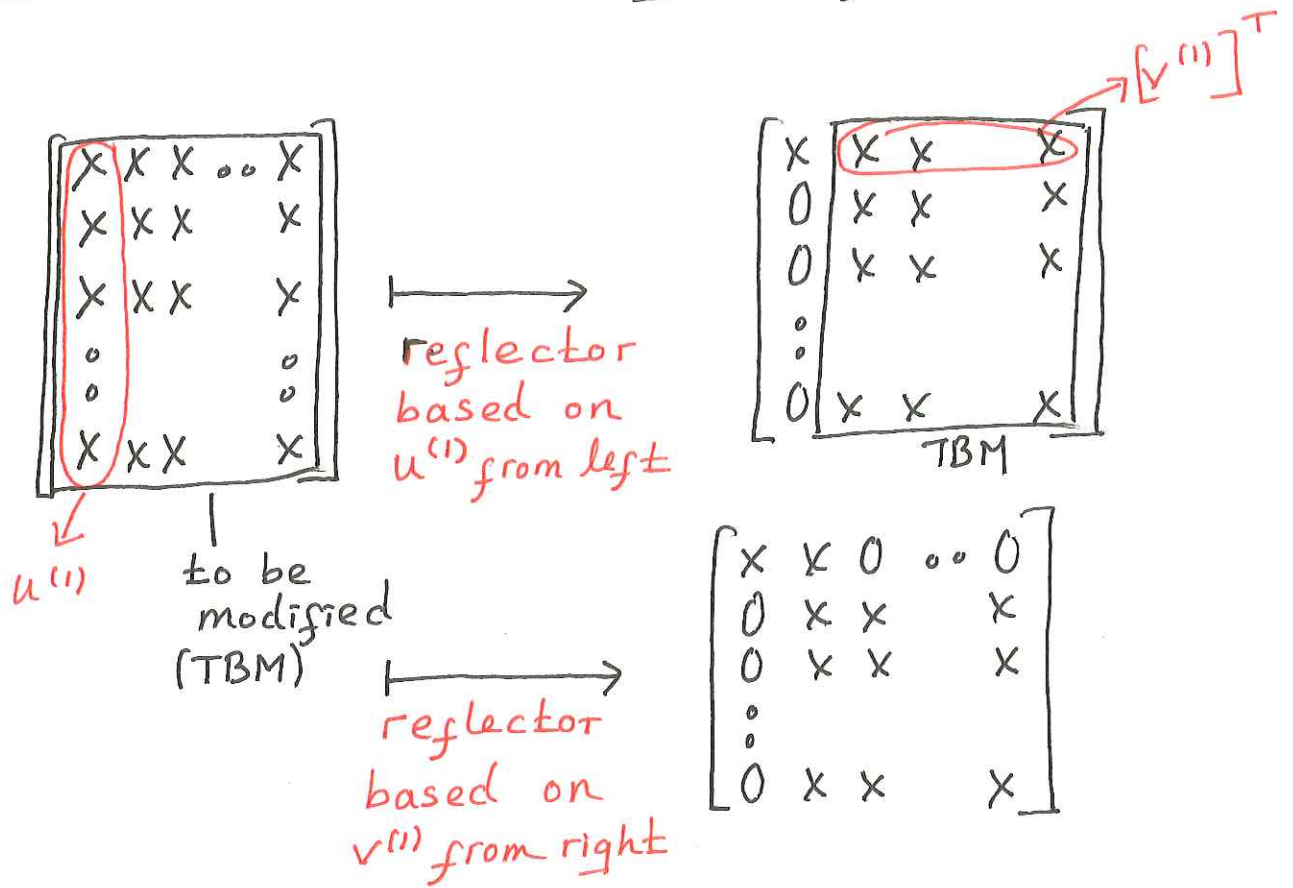 [v⁽¹⁾]ᵀ
X X X .. X
X X X X
X X X X
o o
o o
X X X X
u⁽¹⁾
to be
modified
(TBM)
reflector
based on
u⁽¹⁾ from left
X X X X
0 X X X
0 X X X
:
0 X X X
TBM
reflector
based on
v⁽¹⁾ from right
X X 0 .. 0
0 X X X
0 X X X
:
0 X X X